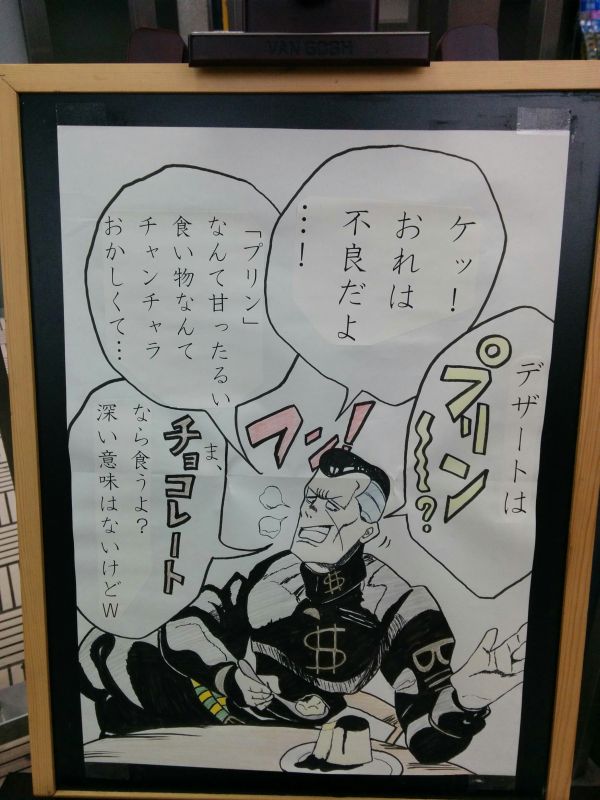 VAN GOGH
デザートは
プリン
〜〜?
ケッ!
おれは
不良だよ
…!
「プリン」
なんて甘ったるい
食い物なんて
チャンチャラ
おかしくて…
フン!
ま、
チョコレート
なら食うよ?
深い意味はないけどW
$
$
B